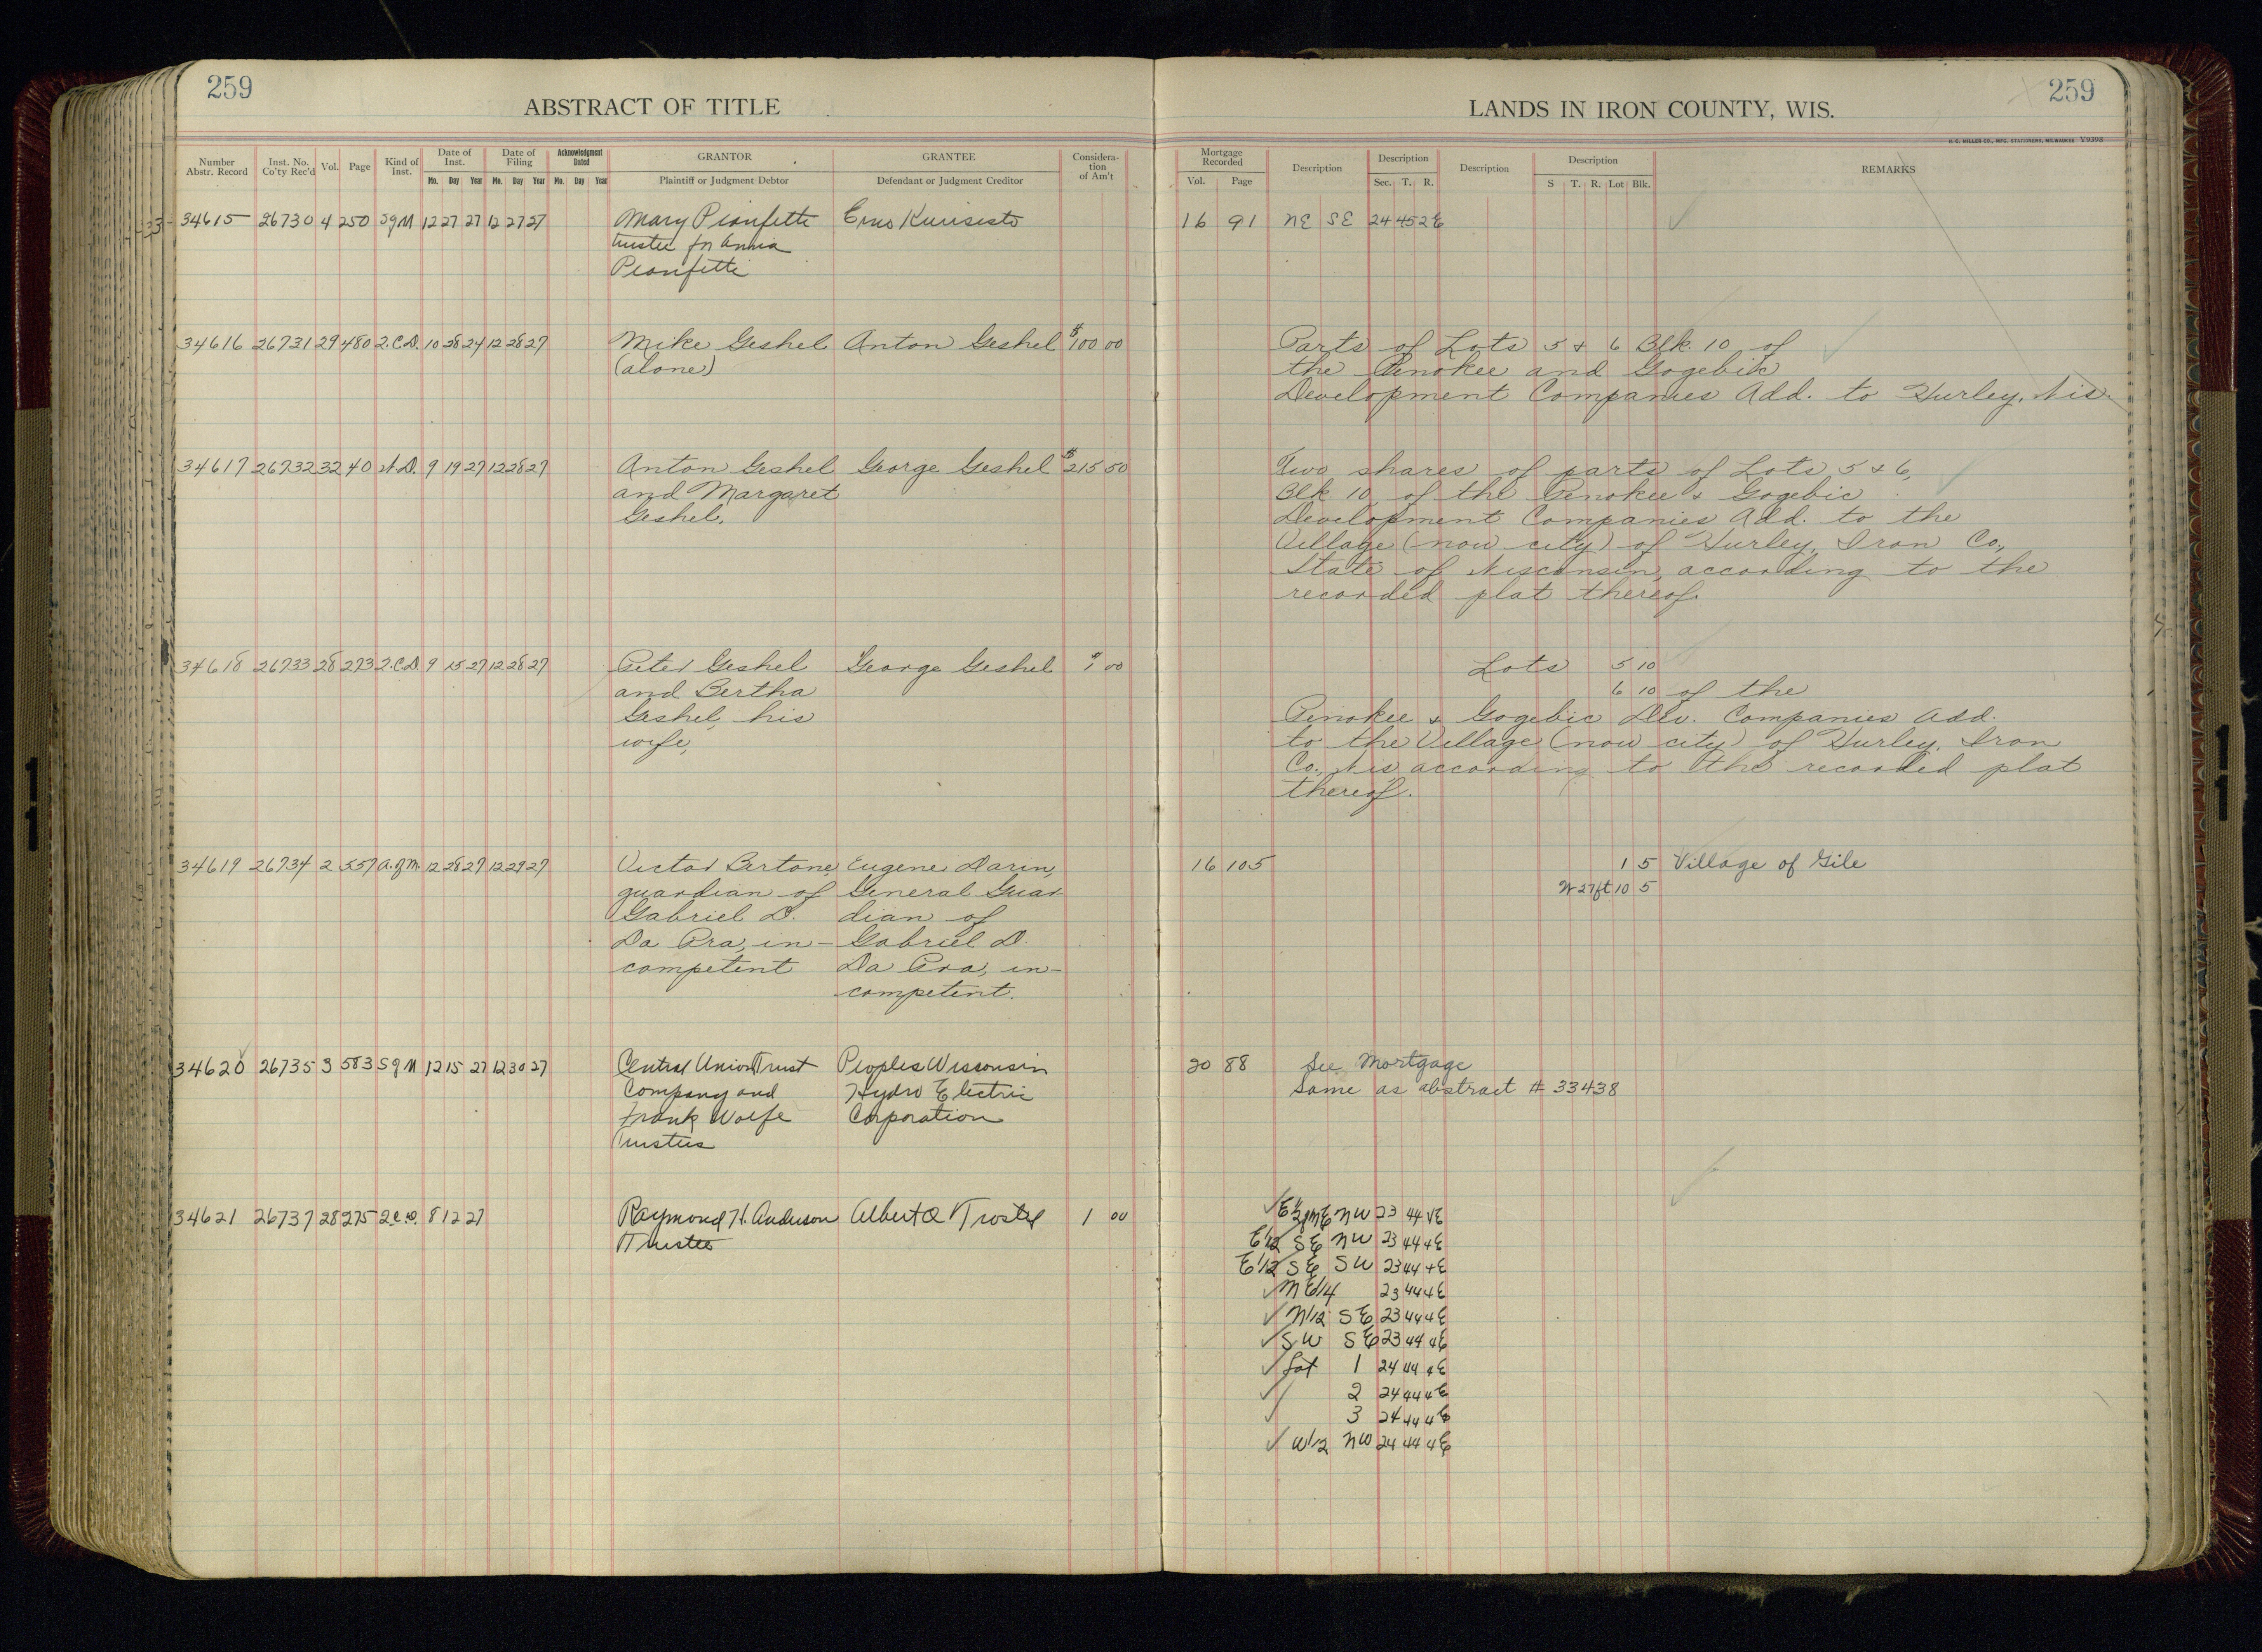 259
ABSTRACT OF TITLE
LANDS IN IRON COUNTY, WIS.
259
H. C. MILLER CO., MFG. STATIONERS, MILWAUKEE V9398
Number Abstr. Record
Inst. No. Co'ty Rec'd
Vol.
Page
Kind of Inst.
Date of Inst.
Mo. Day Year
Date of Filing
Mo. Day Year
Acknowledgment Dated
Mo. Day Year
GRANTOR
Plaintiff or Judgment Debtor
GRANTEE
Defendant or Judgment Creditor
Considera-
tion
of Am't
Mortgage Recorded
Vol. Page
Description
Description
Sec. T. R.
Description
Description
S T. R. Lot Blk.
REMARKS
34615 26730 4 250 Sg M 12 27 27 12 27 27 Mary Pionfetti Erno Kurisisto 16 91 NE SE 24 45 2E
trustee for Anna
Pionfetti
34616 26731 29 480 2.C.D. 10 28 24 12 28 27 Mike Geshel Anton Geshel $100 00 Parts of Lots 5 & 6 Blk. 10 of
(alone) the Penokee and Gogebic
Development Companies Add. to Hurley, Wis.
34617 26732 32 40 W.D. 9 19 27 12 28 27 Anton Geshel George Geshel $215 50 Two shares of parts of Lots 5 & 6,
and Margaret Blk. 10 of the Penokee & Gogebic
Geshel, Development Companies Add. to the
Village (now city) of Hurley, Iron Co.,
State of Wisconsin, according to the
recorded plat thereof.
34618 26733 28 273 2.C.D. 9 15 27 12 28 27 Peter Geshel George Geshel $1 00 Lots 5 10
and Bertha 6 10 of the
Geshel, his Penokee & Gogebic Dev. Companies Add.
wife, to the Village (now city) of Hurley, Iron
Co., Wis. according to the recorded plat
thereof.
34619 26734 2 557 A.of M. 12 28 27 12 29 27 Victor Bertone, Eugene Darin, 16 105 1 5 Village of Gile
guardian of General Guar- W 27 ft 10 5
Gabriel D. dian of
Da Pra, in- Gabriel D.
competent Da Pra, in-
competent.
34620 26735 3 583 Sg M 12 15 27 12 30 27 Central Union Trust Peoples Wisconsin 20 88 See Mortgage
Company and Hydro Electric Same as abstract # 33438
Frank Wolfe Corporation
Trustees
34621 26737 28 275 2.C.D. 8 12 27 Raymond H. Anderson Albert O Trostel 1 00 E 1/2 of NE NW 23 44 4E
Trustee E 1/2 SE NW 23 44 4E
E 1/2 SE SW 23 44 4E
NE 1/4 23 44 4E
N 1/2 SE 23 44 4E
SW SE 23 44 4E
Lot 1 24 44 4E
2 24 44 4E
3 24 44 4E
W 1/2 NW 24 44 4E